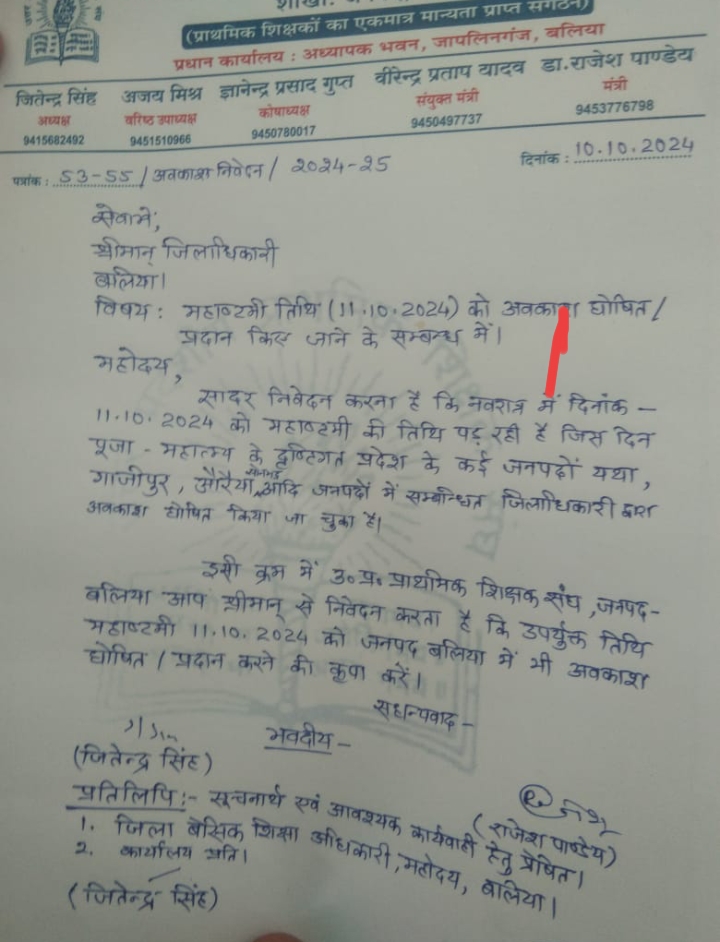 (प्राथमिक शिक्षकों का एकमात्र मान्यता प्राप्त संगठन)
प्रधान कार्यालय : अध्यापक भवन, जापलिनगंज, बलिया
जितेन्द्र सिंह अजय मिश्र ज्ञानेन्द्र प्रसाद गुप्त वीरेन्द्र प्रताप यादव डा.राजेश पाण्डेय
अध्यक्ष वरिष्ठ उपाध्यक्ष कोषाध्यक्ष संयुक्त मंत्री मंत्री
9415682492 9451510966 9450780017 9450497737 9453776798
पत्रांक : 53-55/अवकाश निवेदन/ 2024-25 दिनांक : 10.10.2024
सेवामें,
श्रीमान् जिलाधिकारी
बलिया।
विषय : महाष्टमी तिथि (11.10.2024) को अवकाश घोषित/
प्रदान किए जाने के सम्बन्ध में।
महोदय,
सादर निवेदन करना है कि नवरात्र में दिनांक -
11.10.2024 को महाष्टमी की तिथि पड़ रही है जिस दिन
पूजा - महात्मय के दृष्टिगत प्रदेश के कई जनपदों यथा,
गाजीपुर, औरैया, आदि जनपदों में सम्बन्धित जिलाधिकारी द्वारा
अवकाश घोषित किया जा चुका है।
इसी क्रम में उ०प्र० प्राथमिक शिक्षक संघ, जनपद-
बलिया आप श्रीमान् से निवेदन करता है कि उपर्युक्त तिथि
महाष्टमी 11.10.2024 को जनपद बलिया में भी अवकाश
घोषित / प्रदान करने की कृपा करें।
सधन्यवाद -
भवदीय -
(जितेन्द्र सिंह)
(राजेश पाण्डेय)
प्रतिलिपि :- सूचनार्थ एवं आवश्यक कार्यवाही हेतु प्रेषित।
1. जिला बेसिक शिक्षा अधिकारी, महोदय, बलिया।
2. कार्यालय प्रति।
(जितेन्द्र सिंह)